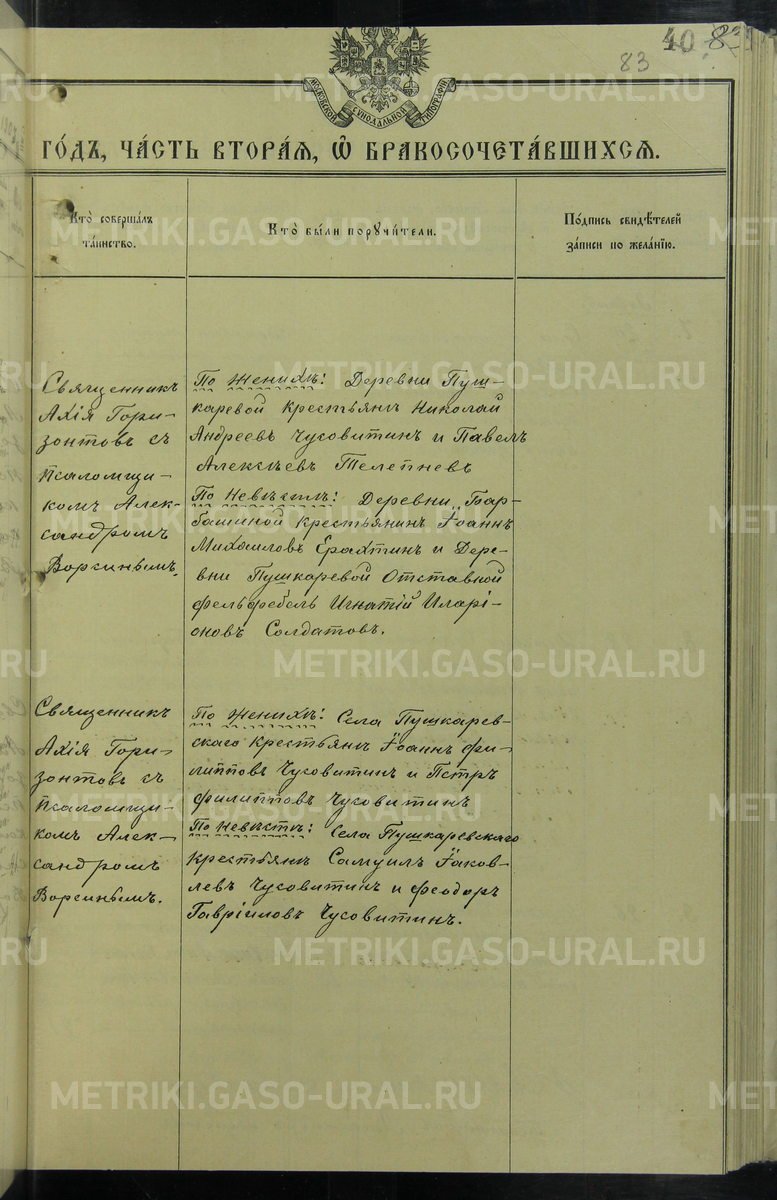 40
83
МОСКОВСКОЙ СУНОДАЛЬНОЙ ТИПОГРАФІИ
ГО́ДЪ, ЧА́СТЬ ВТОРА́Я, Ѡ҆ БРАКОСОЧЕТА́ВШИХСЯ.
Кто̀ соверша́лъ
та́инство.
Кто̀ бы́ли порꙋчи́тели.
По́дпись свидѣ́телей
за́писи по жела́нїю.
Священникъ
Ахія Гори-
зонтовъ съ
псаломщи-
комъ Алек-
сандромъ
Ворсинымъ.
По женихѣ: Деревни Пуш-
каревой крестьяне Николай
Андреевъ Чусовитинъ и Павелъ
Алексѣевъ Телепневъ
По невѣстѣ: Деревни Бар-
башиной крестьянинъ Іоаннъ
Михаиловъ Ерахтинъ и Дере-
вни Пушкаревой Отставной
фельдфебель Игнатій Иларі-
оновъ Солдатовъ.
Священникъ
Ахія Гори-
зонтовъ съ
псаломщи-
комъ Алек-
сандромъ
Ворсинымъ.
По женихѣ: Села Пушкарев-
скаго крестьяне Іоаннъ Фи-
липповъ Чусовитинъ и Петръ
Филипповъ Чусовитинъ
По невѣстѣ: Села Пушкаревскаго
крестьяне Самуилъ Іаков-
левъ Чусовитинъ и Феодоръ
Гавріиловъ Чусовитинъ.
METRIKI.GASO-URAL.RU